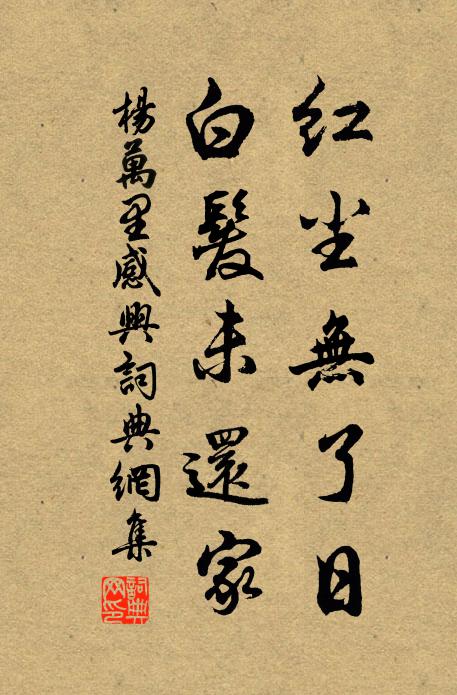 红尘無了日
白髮未還家
楊萬里感興詞典網集
詞典網印